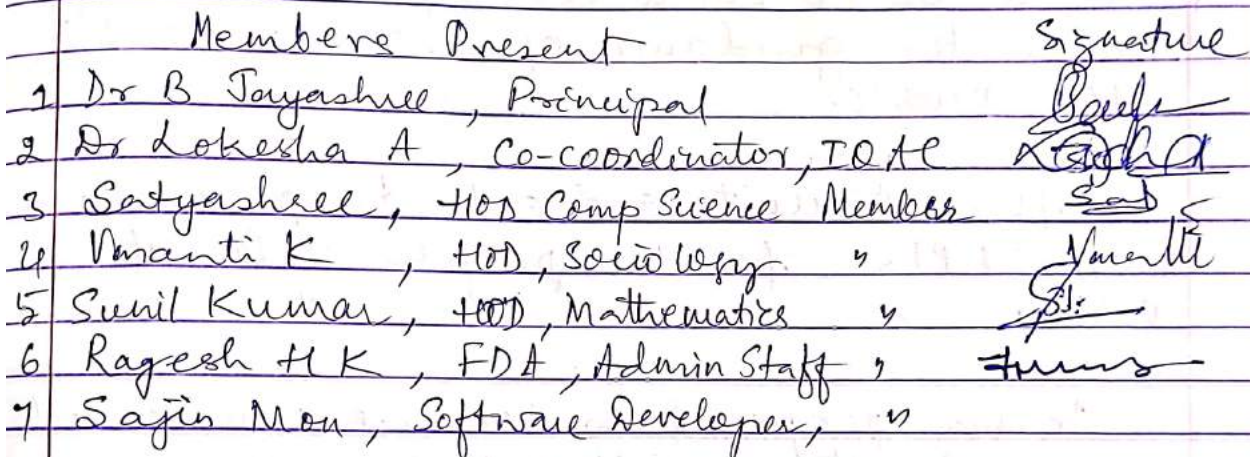 Members Present Signature
1 Dr B Jayashree, Principal
2 Dr Lokesha A, Co-coordinator, IQAC
3 Satyashree, HOD Comp Science Member
4 Vasanti K, HOD, Sociology "
5 Sunil Kumar, HOD, Mathematics "
6 Ragesh H K, FDA, Admin Staff "
7 Sajin Mon, Software Developer, "